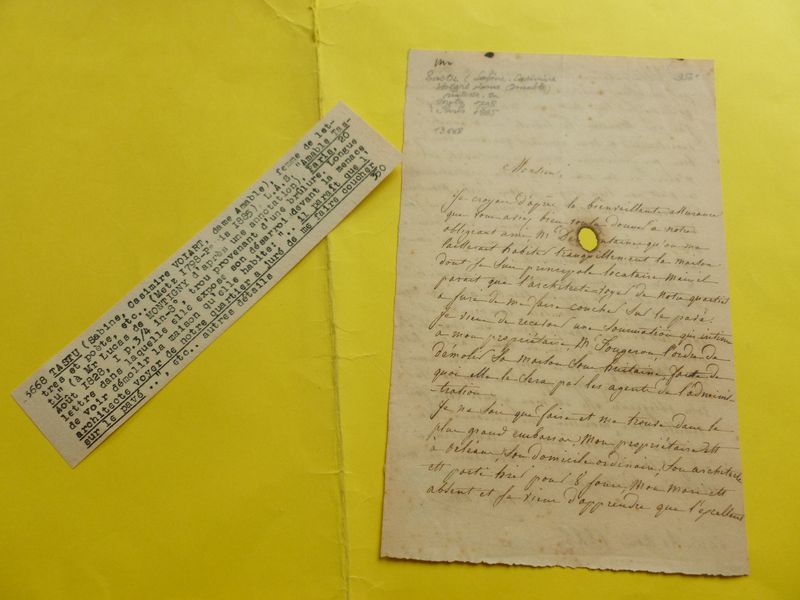 3668 TASTU (Sabine, Casimire VOIART, dame Amable), femme de let-
tres et poète, etc.. (Metz 1798-Paris 1885) L.A.S. "Amable Tas-
tu" (à Mr Lucas de MONTIGNY d'après une annotation), Paris, 20
Août 1828, 1 p.3/4 in-8°, trou provenant d'une brûlure. Longue
lettre dans laquelle elle expose son désarroi devant la menace
de voir démolir la maison qu'elle habite: ".. il paraît que l'
architecte voyer de notre quartier a juré de me faire coucher
sur le pavé ..", etc.. autres détails 350
Monsieur,
Je croyais d'après la bienveillante assurance
que vous aviez bien voulu donner à notre
obligeant ami Mr qu'on me
laisserait habiter tranquillement la maison
dont je suis principale locataire Mais il
parait que l'architecte-voyer de notre quartier
a juré de me faire coucher sur le pavé.
Je viens de recevoir une sommation qui intime
à mon propriétaire Mr Fougeron l'ordre de
démolir sa maison sous huitaine faute de
quoi elle le sera par les agents de l'adminis-
tration.
Je ne sais que faire et me trouve dans le
plus grand embarras, Mon propriétaire est
à Orléans, son domicile ordinaire, son architecte
est parti hier pour 8 jours, Mon mari est
absent et je viens d'apprendre que l'excellent